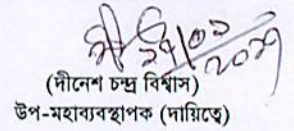 (দীনেশ চন্দ্র বিশ্বাস)
উপ-মহাব্যবস্থাপক (দায়িত্বে)